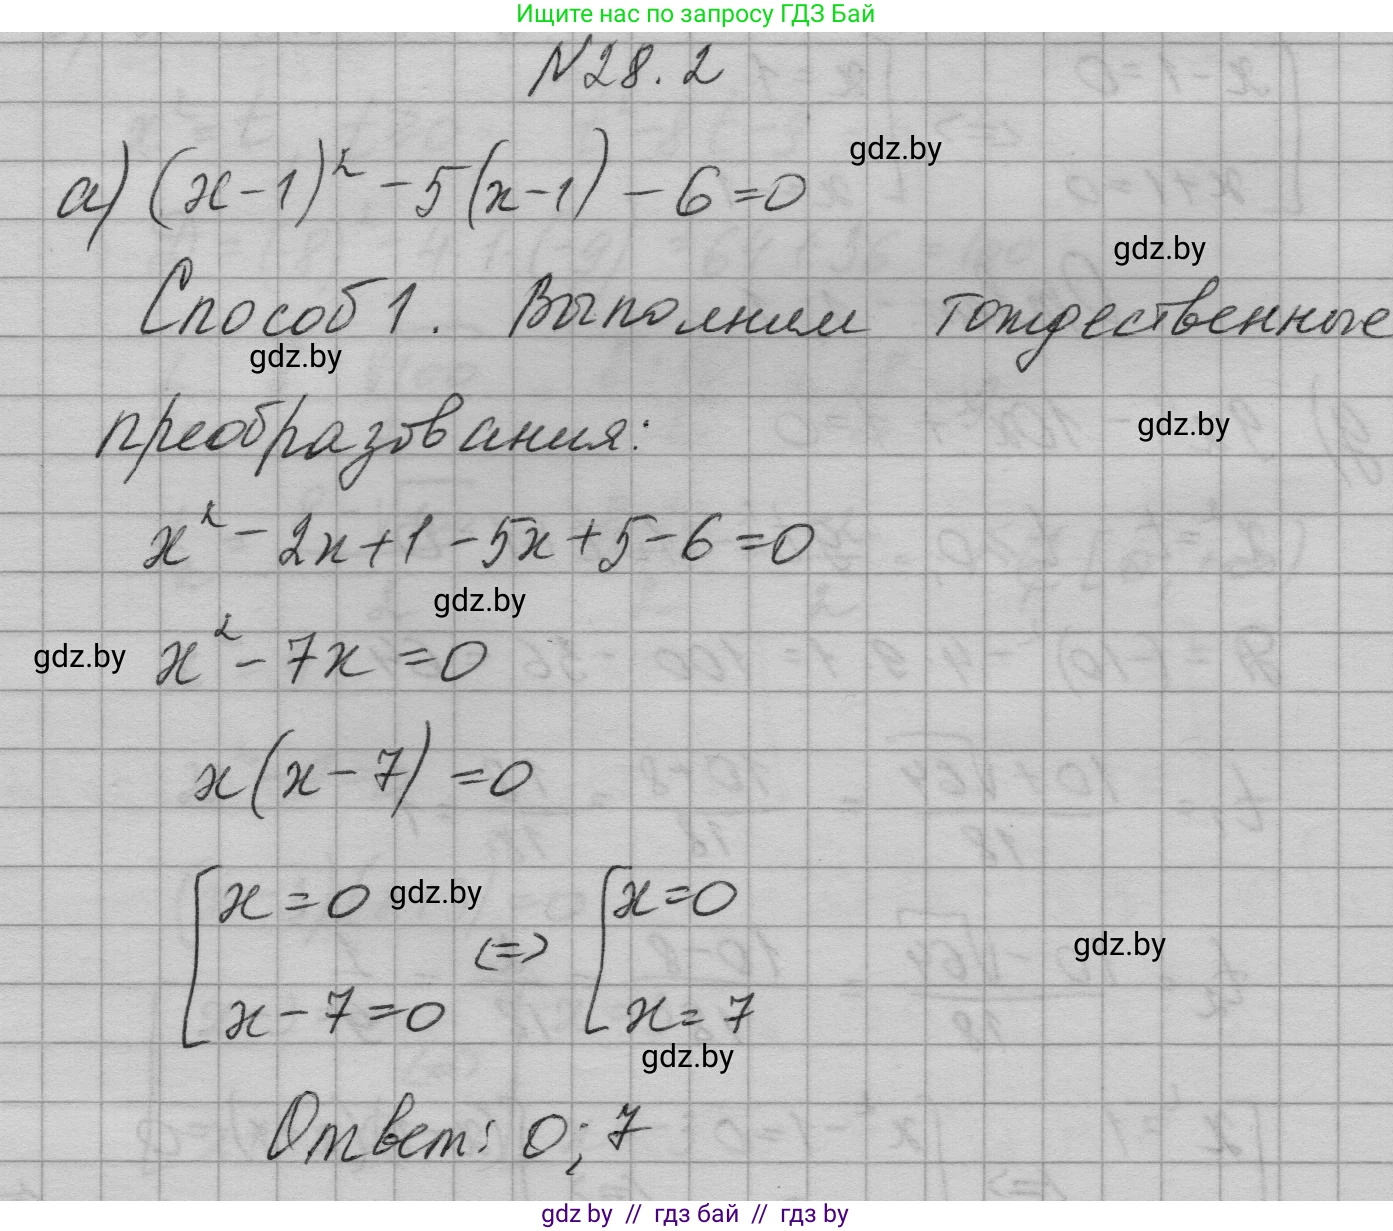 Ищите нас по запросу ГДЗ Бай
N28.2
а) (x-1)² - 5(x-1) - 6 = 0
gdz.by
gdz.by
Способ 1. Выполним тождественные
gdz.by
преобразования:
gdz.by
x² - 2x + 1 - 5x + 5 - 6 = 0
gdz.by
gdz.by
x² - 7x = 0
x(x - 7) = 0
[ x = 0 gdz.by <=> [ x = 0
gdz.by
x - 7 = 0 x = 7
gdz.by
Ответ: 0; 7
gdz by // гдз бай // гдз by